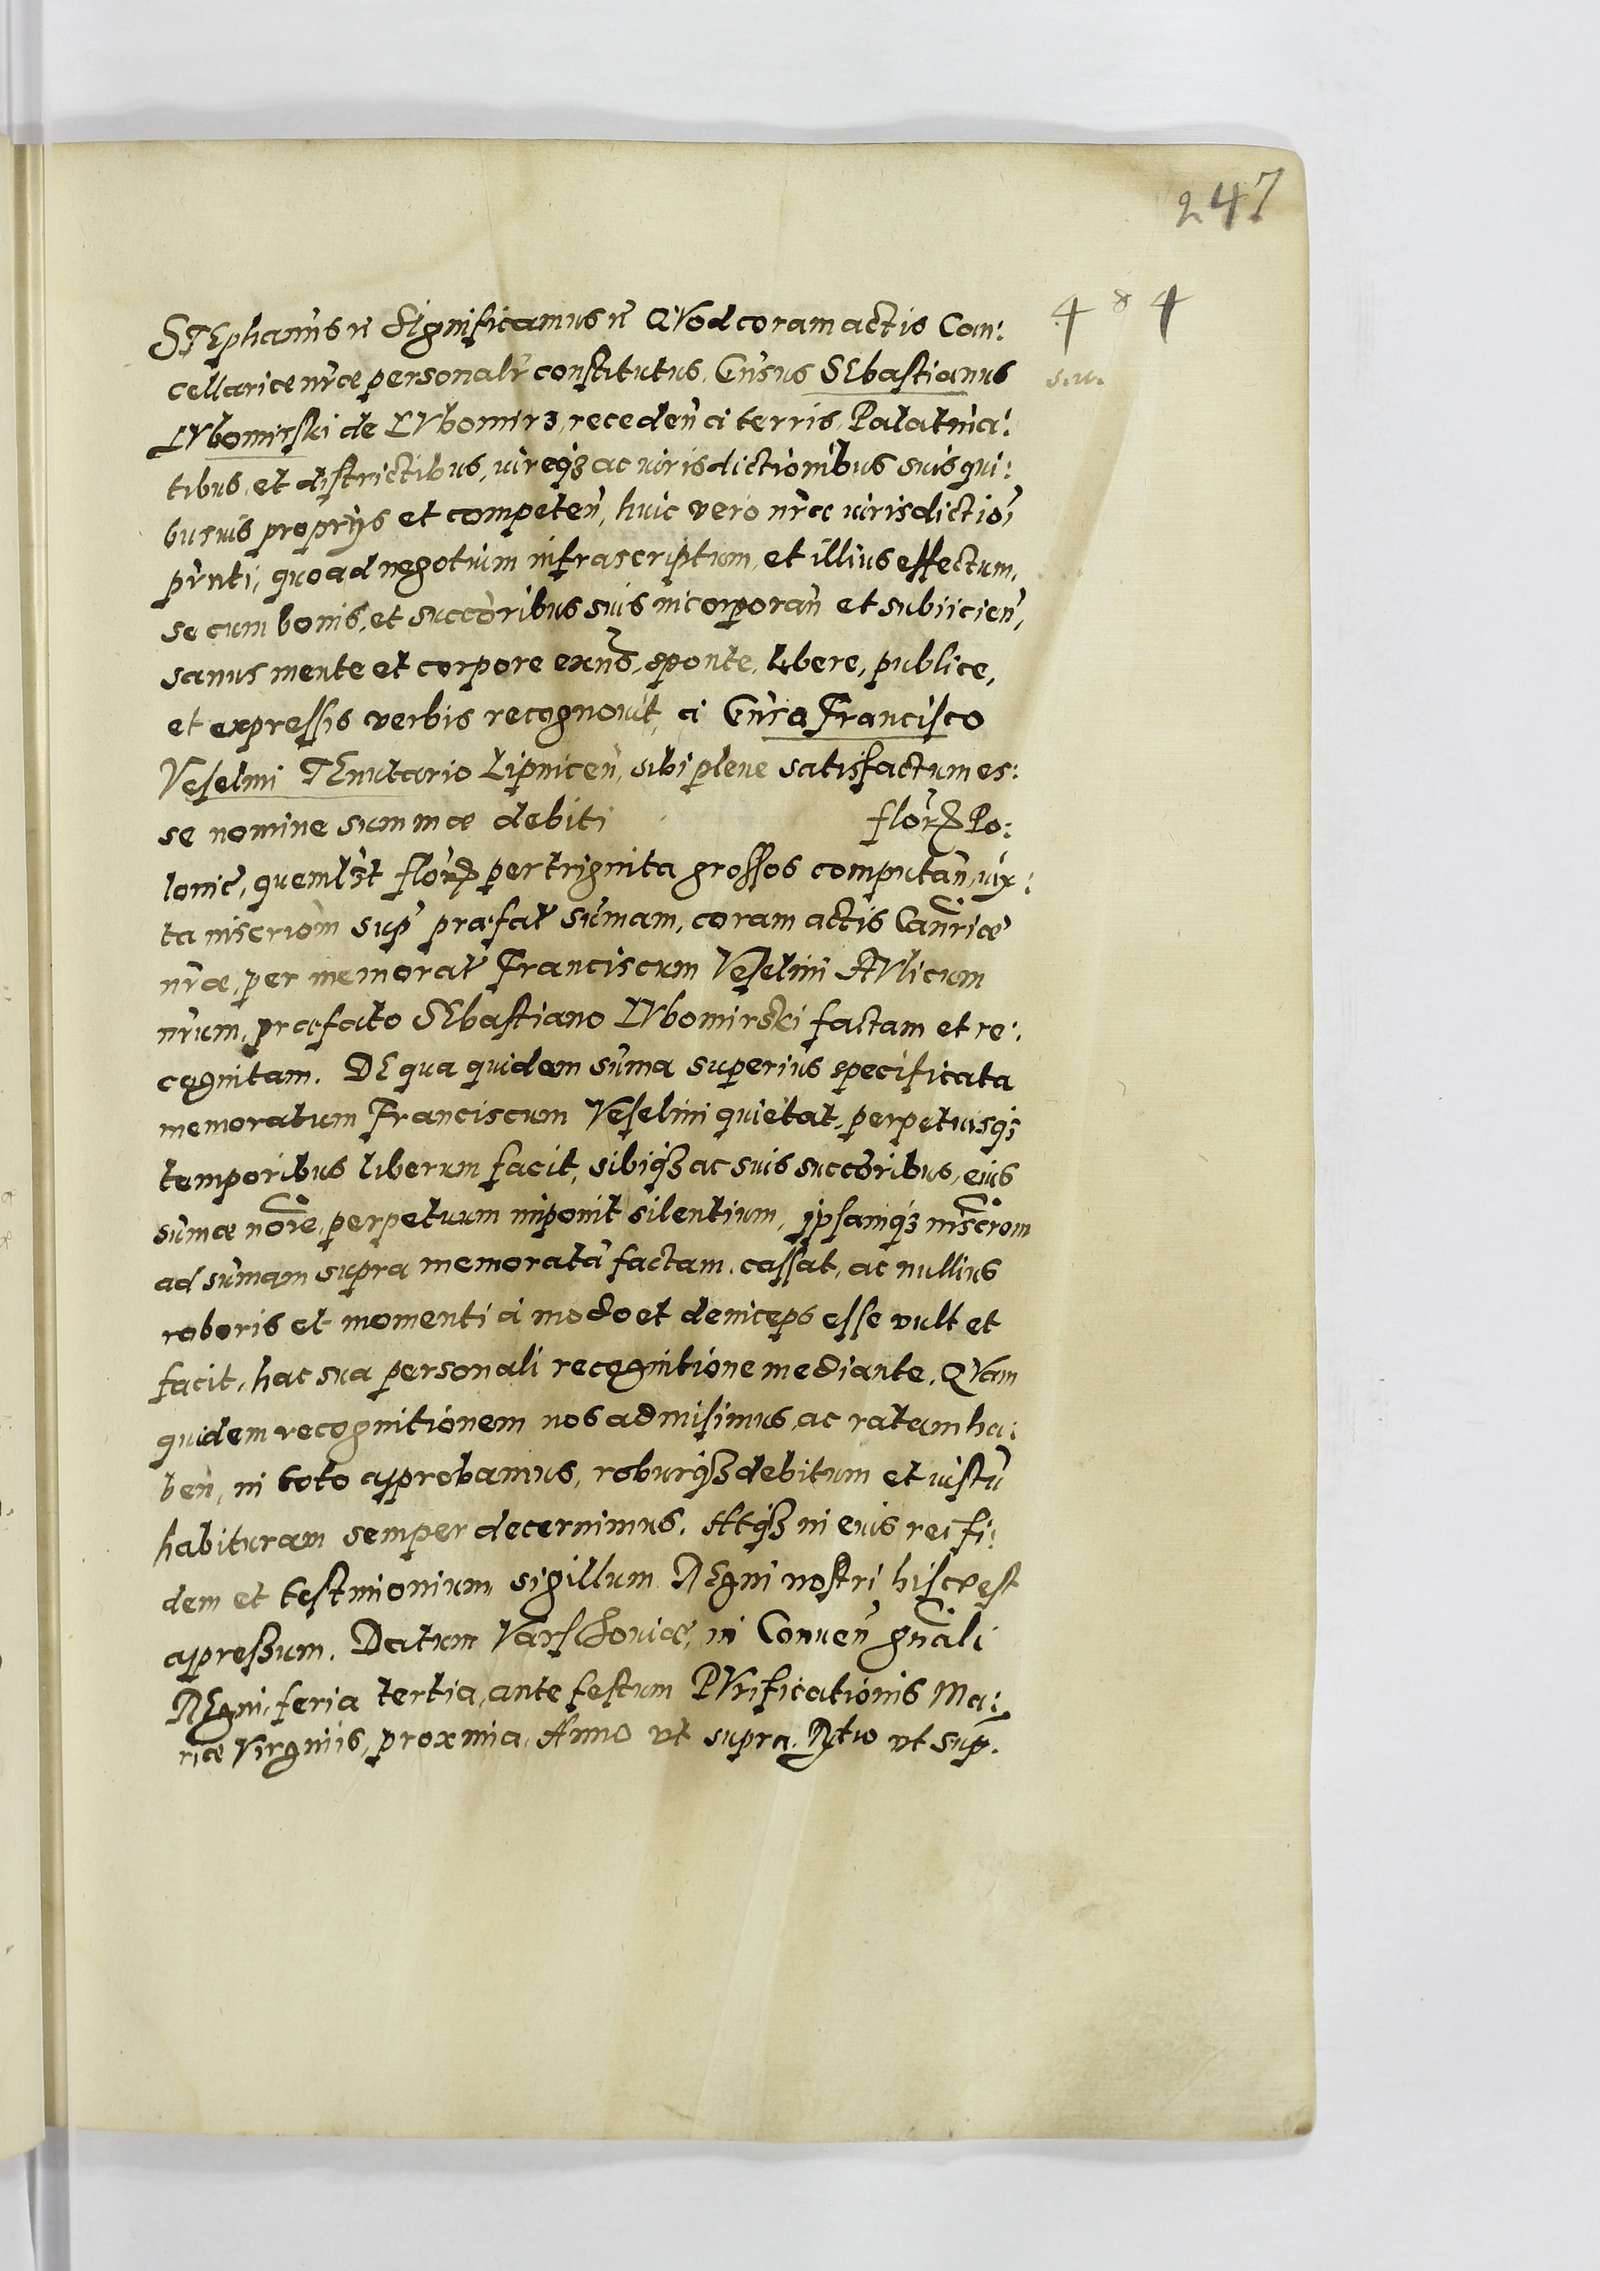 247
484
STEphanus etc SIgnificamus etc QVod coram actis Can:
cellariae nrae personalr constitutus, Gnsus SEbastianus
LVbomirski de LVbomirz, receden a terris, Palatina:
tibus, et districtibus, iureqz ac iurisdictionibus suis qui:
busuis proprijs et competen, huic vero nrae iurisdictioi
pnti, quoad negotium infrascriptum, et illius effectum,
se cum bonis, et succoribus suis incorporan et subiicien,
sanus mente et corpore exnd, sponte, libere, publice,
et expressis verbis recognouit, a Gnso Francisco
Veselini TEnutario Lipnicen, sibi plene satisfactum es:
se nomine summae debiti flor Po:
lonic, quemlbt flor per triginta grossos computan, iux:
ta inscriom sup praefat sumam, coram actis Canriae
nrae, per memorat Franciscum Veselini AVlicum
nrum, praefato SEbastiano LVbomirski factam et re:
cognitam. DE qua quidem suma superius specificata
memoratum Franciscum Veselini quietat, perpetuisqz
temporibus liberum facit, sibiqz ac suis succoribus, eius
sumae noie, perpetuum imponit silentium, ipsamqz inscrom
ad sumam supra memorata factam, cassat, ac nullius
roboris et momenti a modo et deinceps esse vult et
facit, hac sua personali recognitione mediante. QVam
quidem recognitionem nos admisimus, ac ratam ha:
ben, in toto approbamus, roburqz debitum et iustu
habituram semper decernimus. Atqz in eius rei fi:
dem et testimonium, sigillum REgni nostri hisce est
appressum. Datum Varschouiae, in Conuen gnali
REgni, feria tertia, ante festum PVrificationis Ma:
riae Virginis, proxima, Anno vt supra. Rtio vt sup.